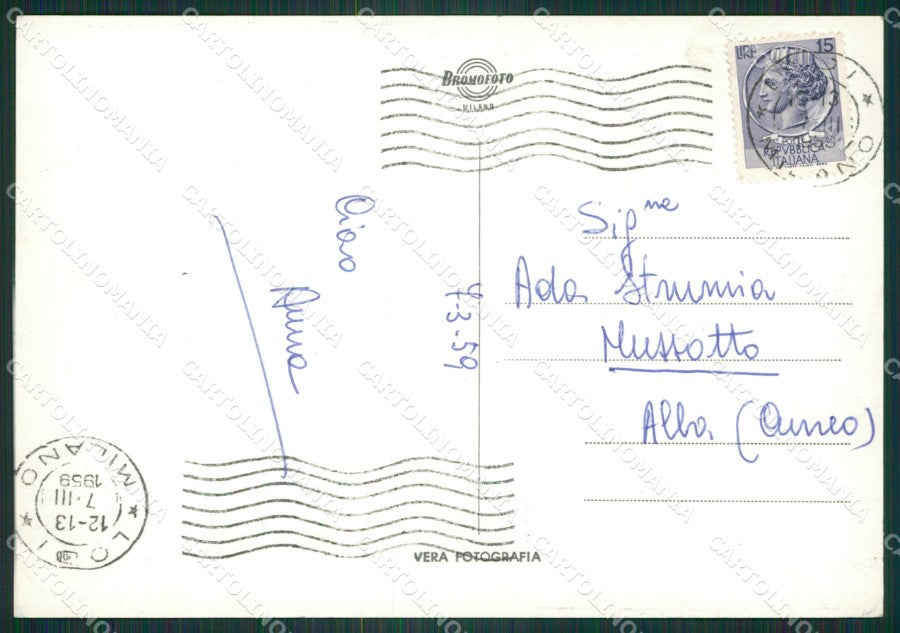 BROMOFOTO
MILANO
LIRE 15
POSTE
REPVBBLICA
ITALIANA
Ciao
Anna
7-3-59
Sig.na
Ada Strumia
Mussotto
Alba (Cuneo)
LODI * MILANO *
12-13
7·III
1959
VERA FOTOGRAFIA
CARTOLINOMANIA